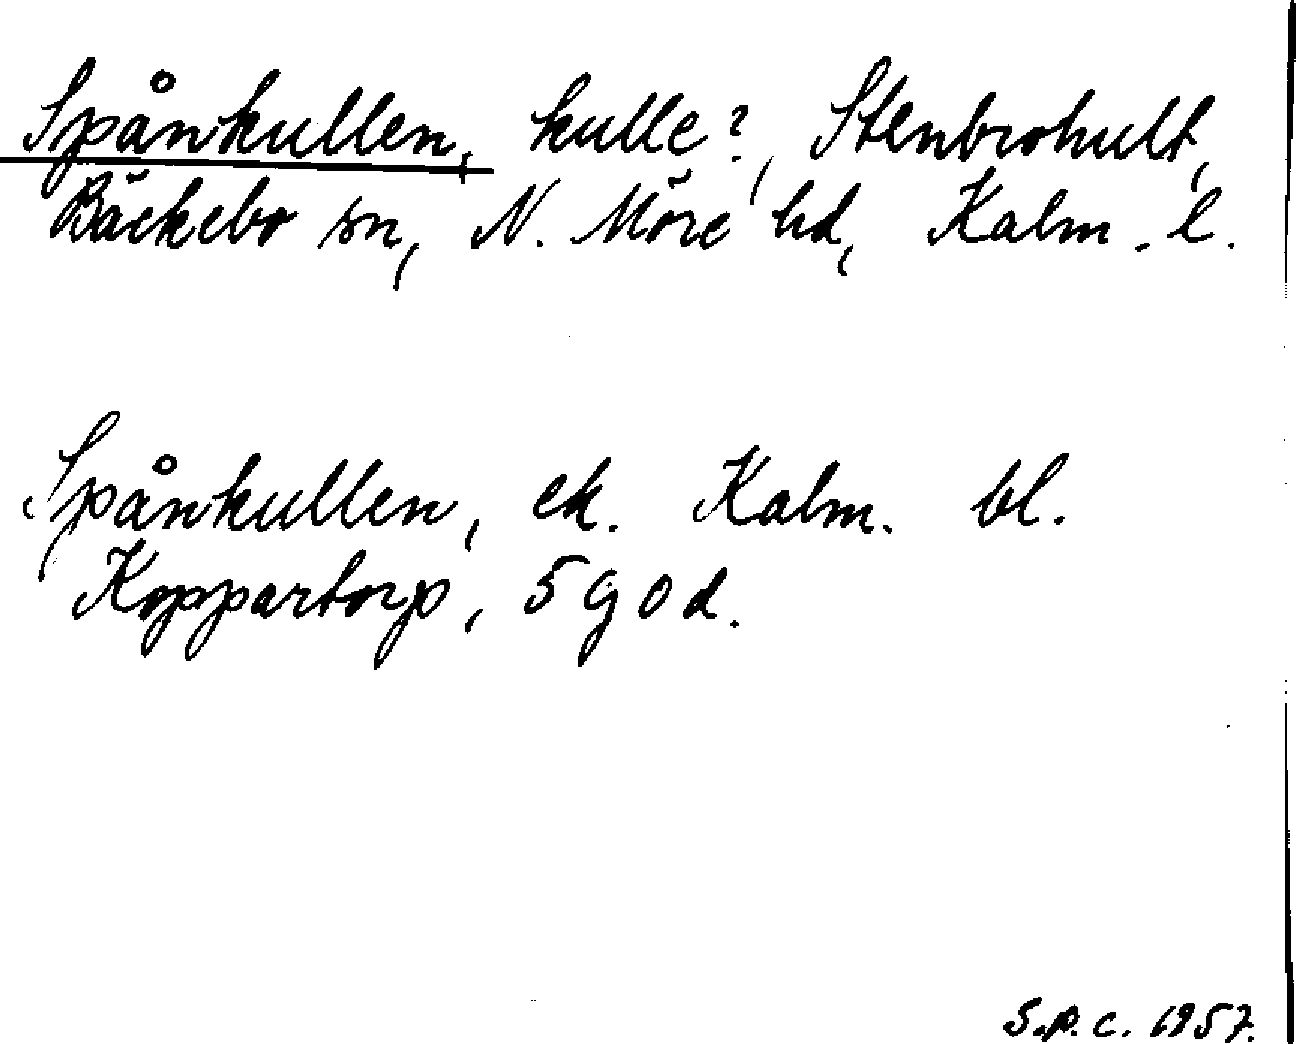 Spånkullen, kulle?, Stenbrohult,
Bäckebo sn, N. Möre hd, Kalm. l.
Spånkullen, ek. Kalm. bl.
Koppartorp, 5 g o d.
S.p.c. 1957.